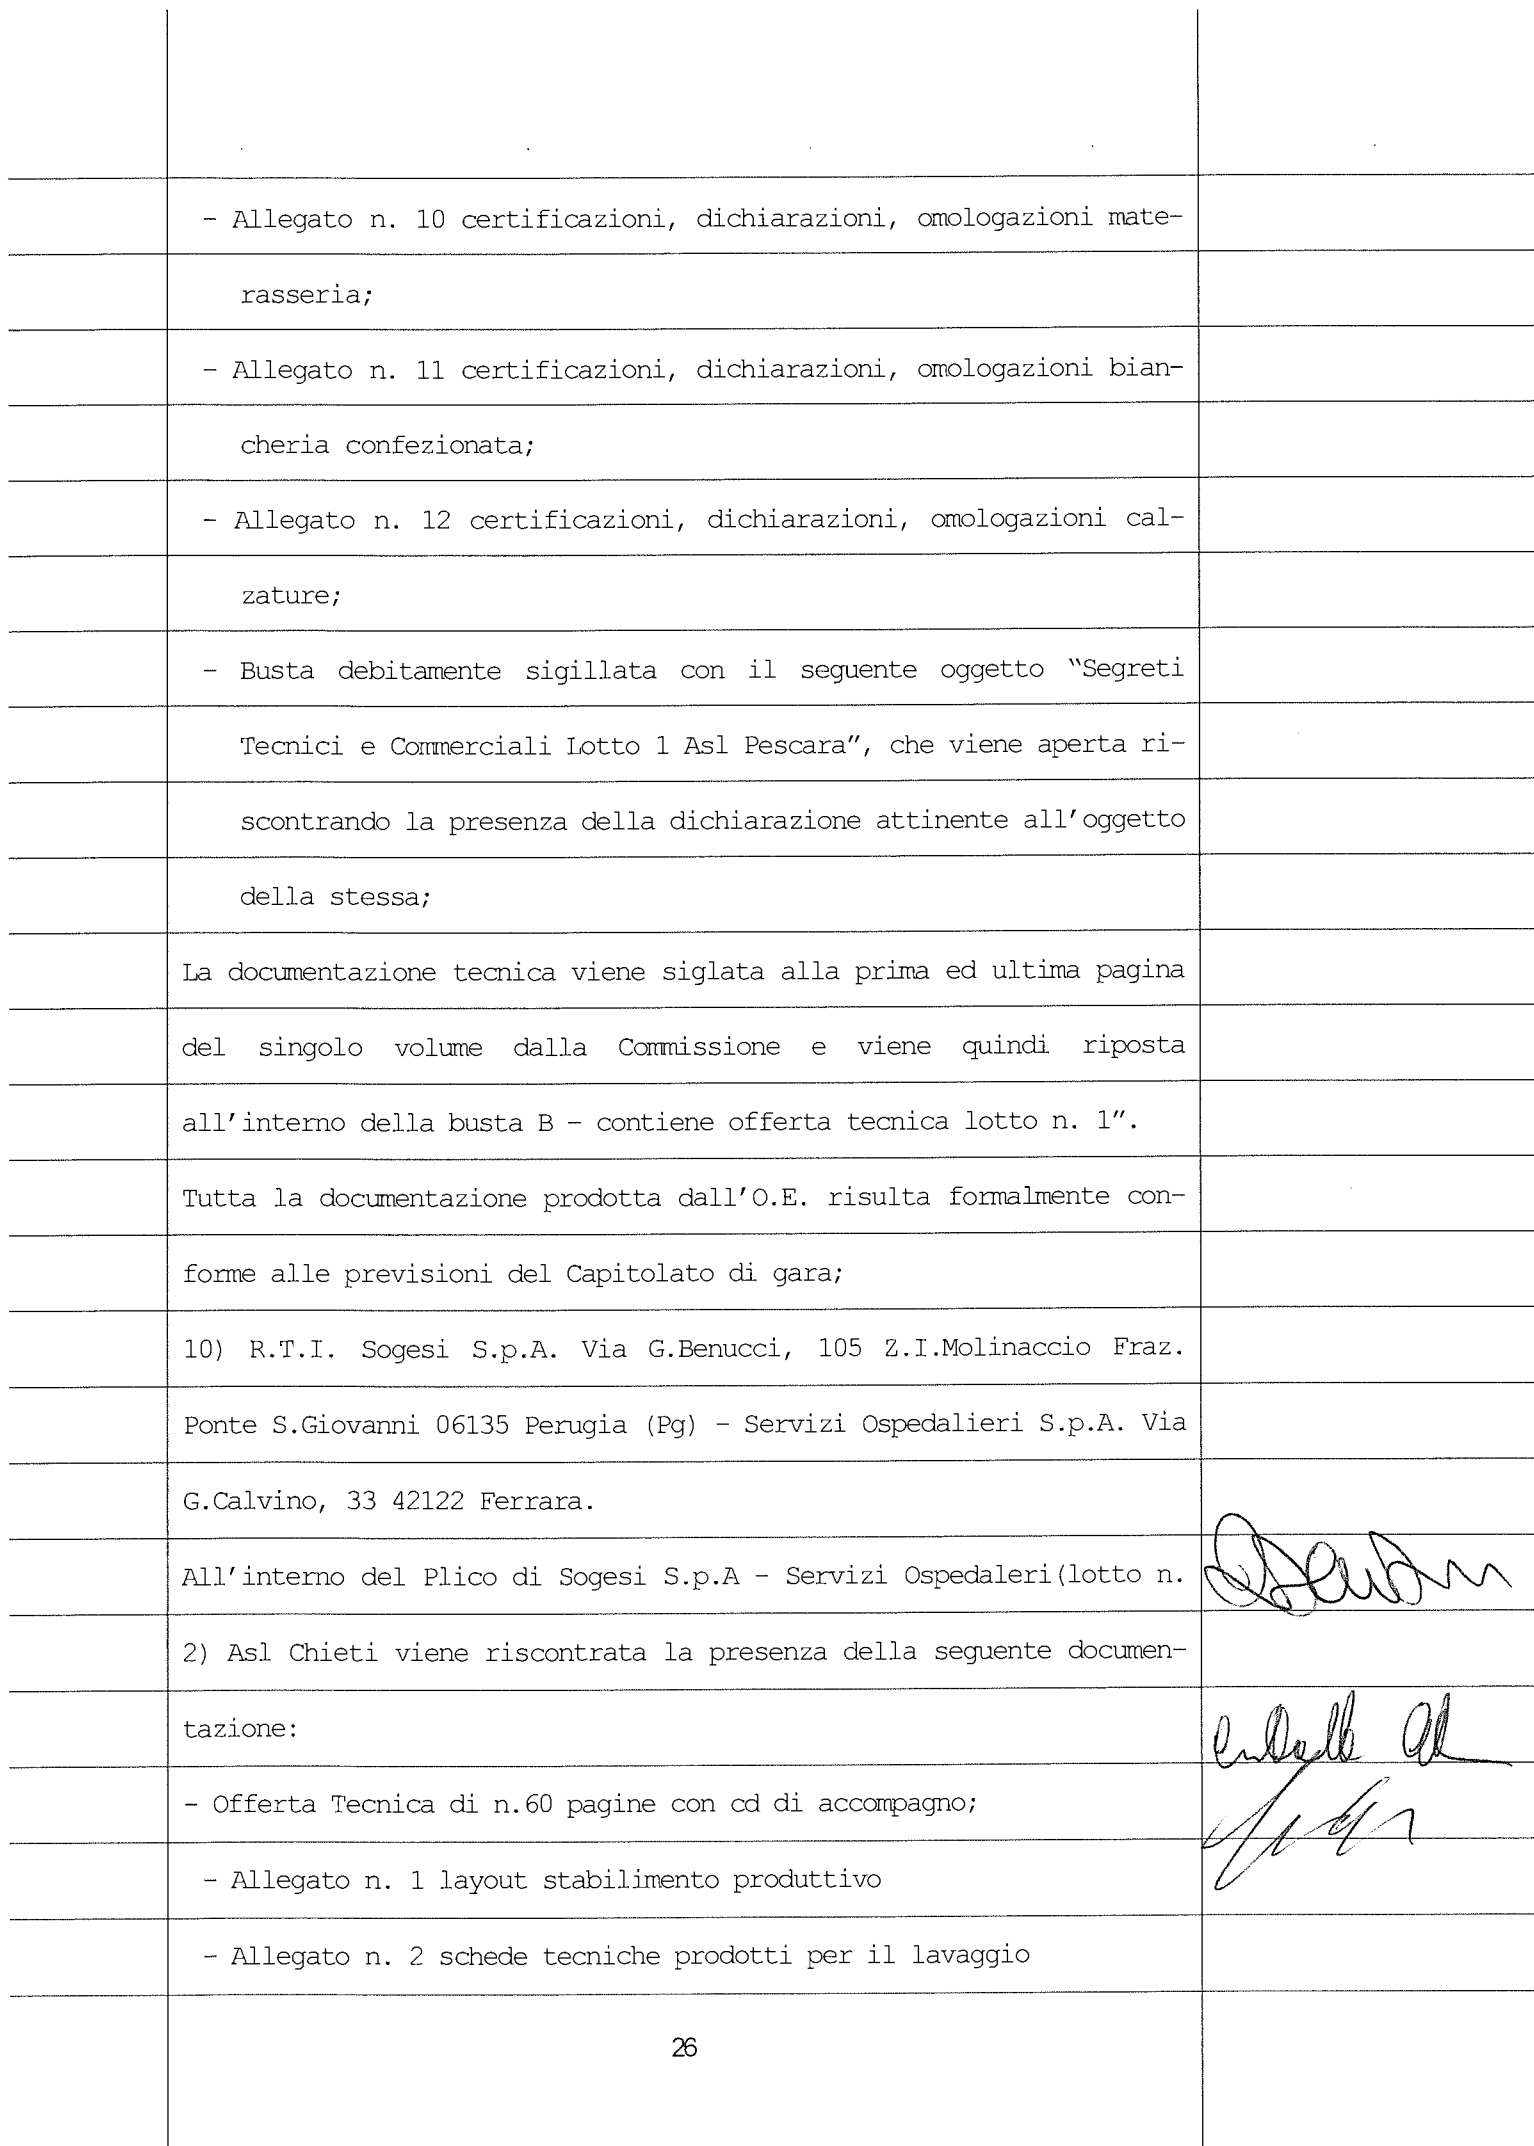 - Allegato n. 10 certificazioni, dichiarazioni, omologazioni mate-
rasseria;
- Allegato n. 11 certificazioni, dichiarazioni, omologazioni bian-
cheria confezionata;
- Allegato n. 12 certificazioni, dichiarazioni, omologazioni cal-
zature;
- Busta debitamente sigillata con il seguente oggetto "Segreti
Tecnici e Commerciali Lotto 1 Asl Pescara", che viene aperta ri-
scontrando la presenza della dichiarazione attinente all'oggetto
della stessa;
La documentazione tecnica viene siglata alla prima ed ultima pagina
del singolo volume dalla Commissione e viene quindi riposta
all'interno della busta B - contiene offerta tecnica lotto n. 1".
Tutta la documentazione prodotta dall'O.E. risulta formalmente con-
forme alle previsioni del Capitolato di gara;
10) R.T.I. Sogesi S.p.A. Via G.Benucci, 105 Z.I.Molinaccio Fraz.
Ponte S.Giovanni 06135 Perugia (Pg) - Servizi Ospedalieri S.p.A. Via
G.Calvino, 33 42122 Ferrara.
All'interno del Plico di Sogesi S.p.A - Servizi Ospedaleri(lotto n.
2) Asl Chieti viene riscontrata la presenza della seguente documen-
tazione:
- Offerta Tecnica di n.60 pagine con cd di accompagno;
- Allegato n. 1 layout stabilimento produttivo
- Allegato n. 2 schede tecniche prodotti per il lavaggio
26